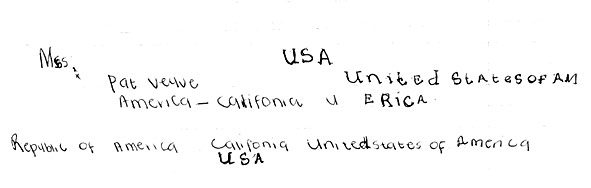 Mss.
USA
Pat veuve United States OF AM
America - Califonia U ERICA
Republic of America Califonia Unitedstates of America
USA